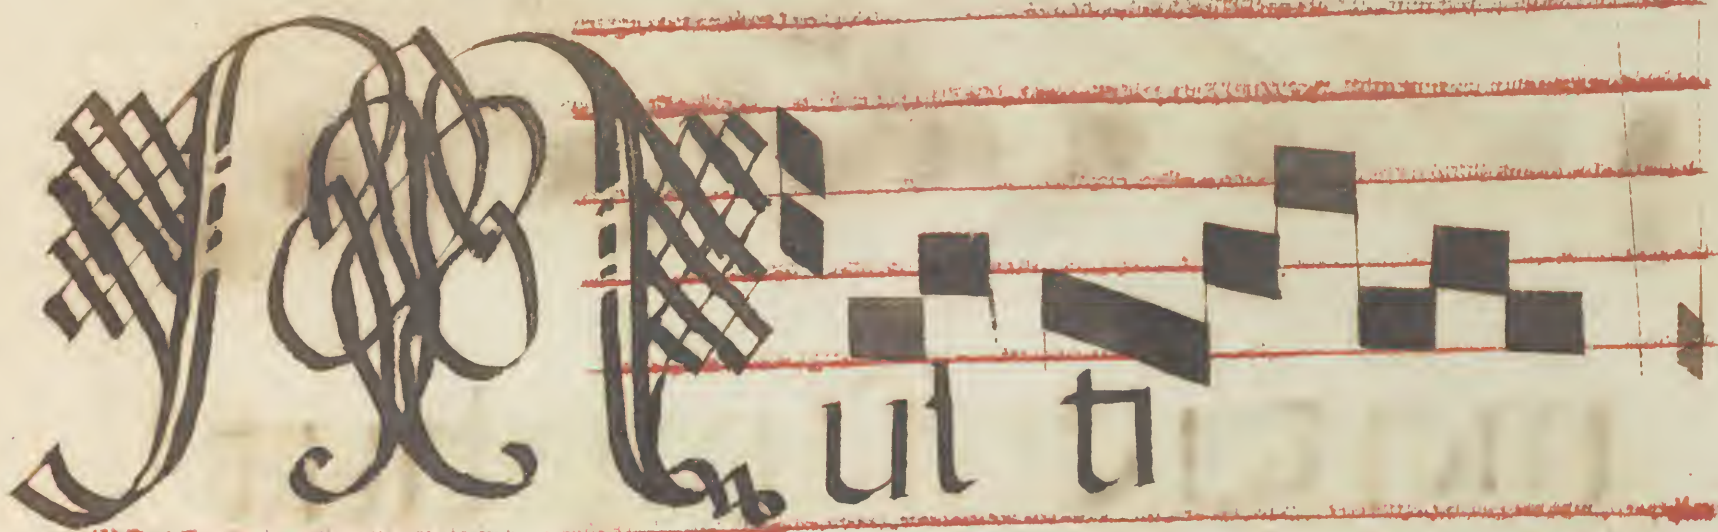 Mul ti